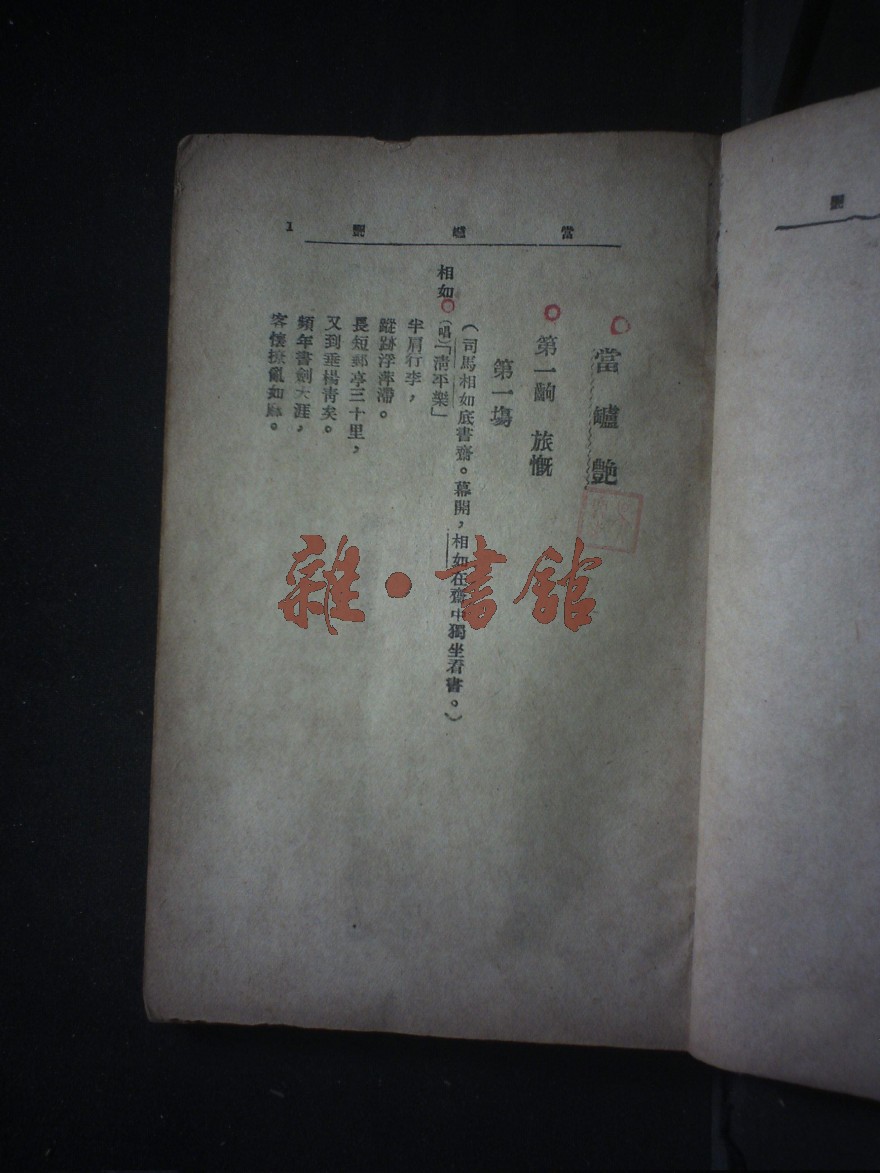 當 罏 艷 1
當 罏 艷
第一齣 旅慨
第一場
(司馬相如底書齋。幕開，相如在齋中獨坐看書。)
相如 (唱)「清平樂」
半肩行李，
蹤跡浮萍滯。
長短郵亭三十里，
又到垂楊青矣。
頻年書劍天涯，
客懷撩亂如麻。
雜·書館
艷